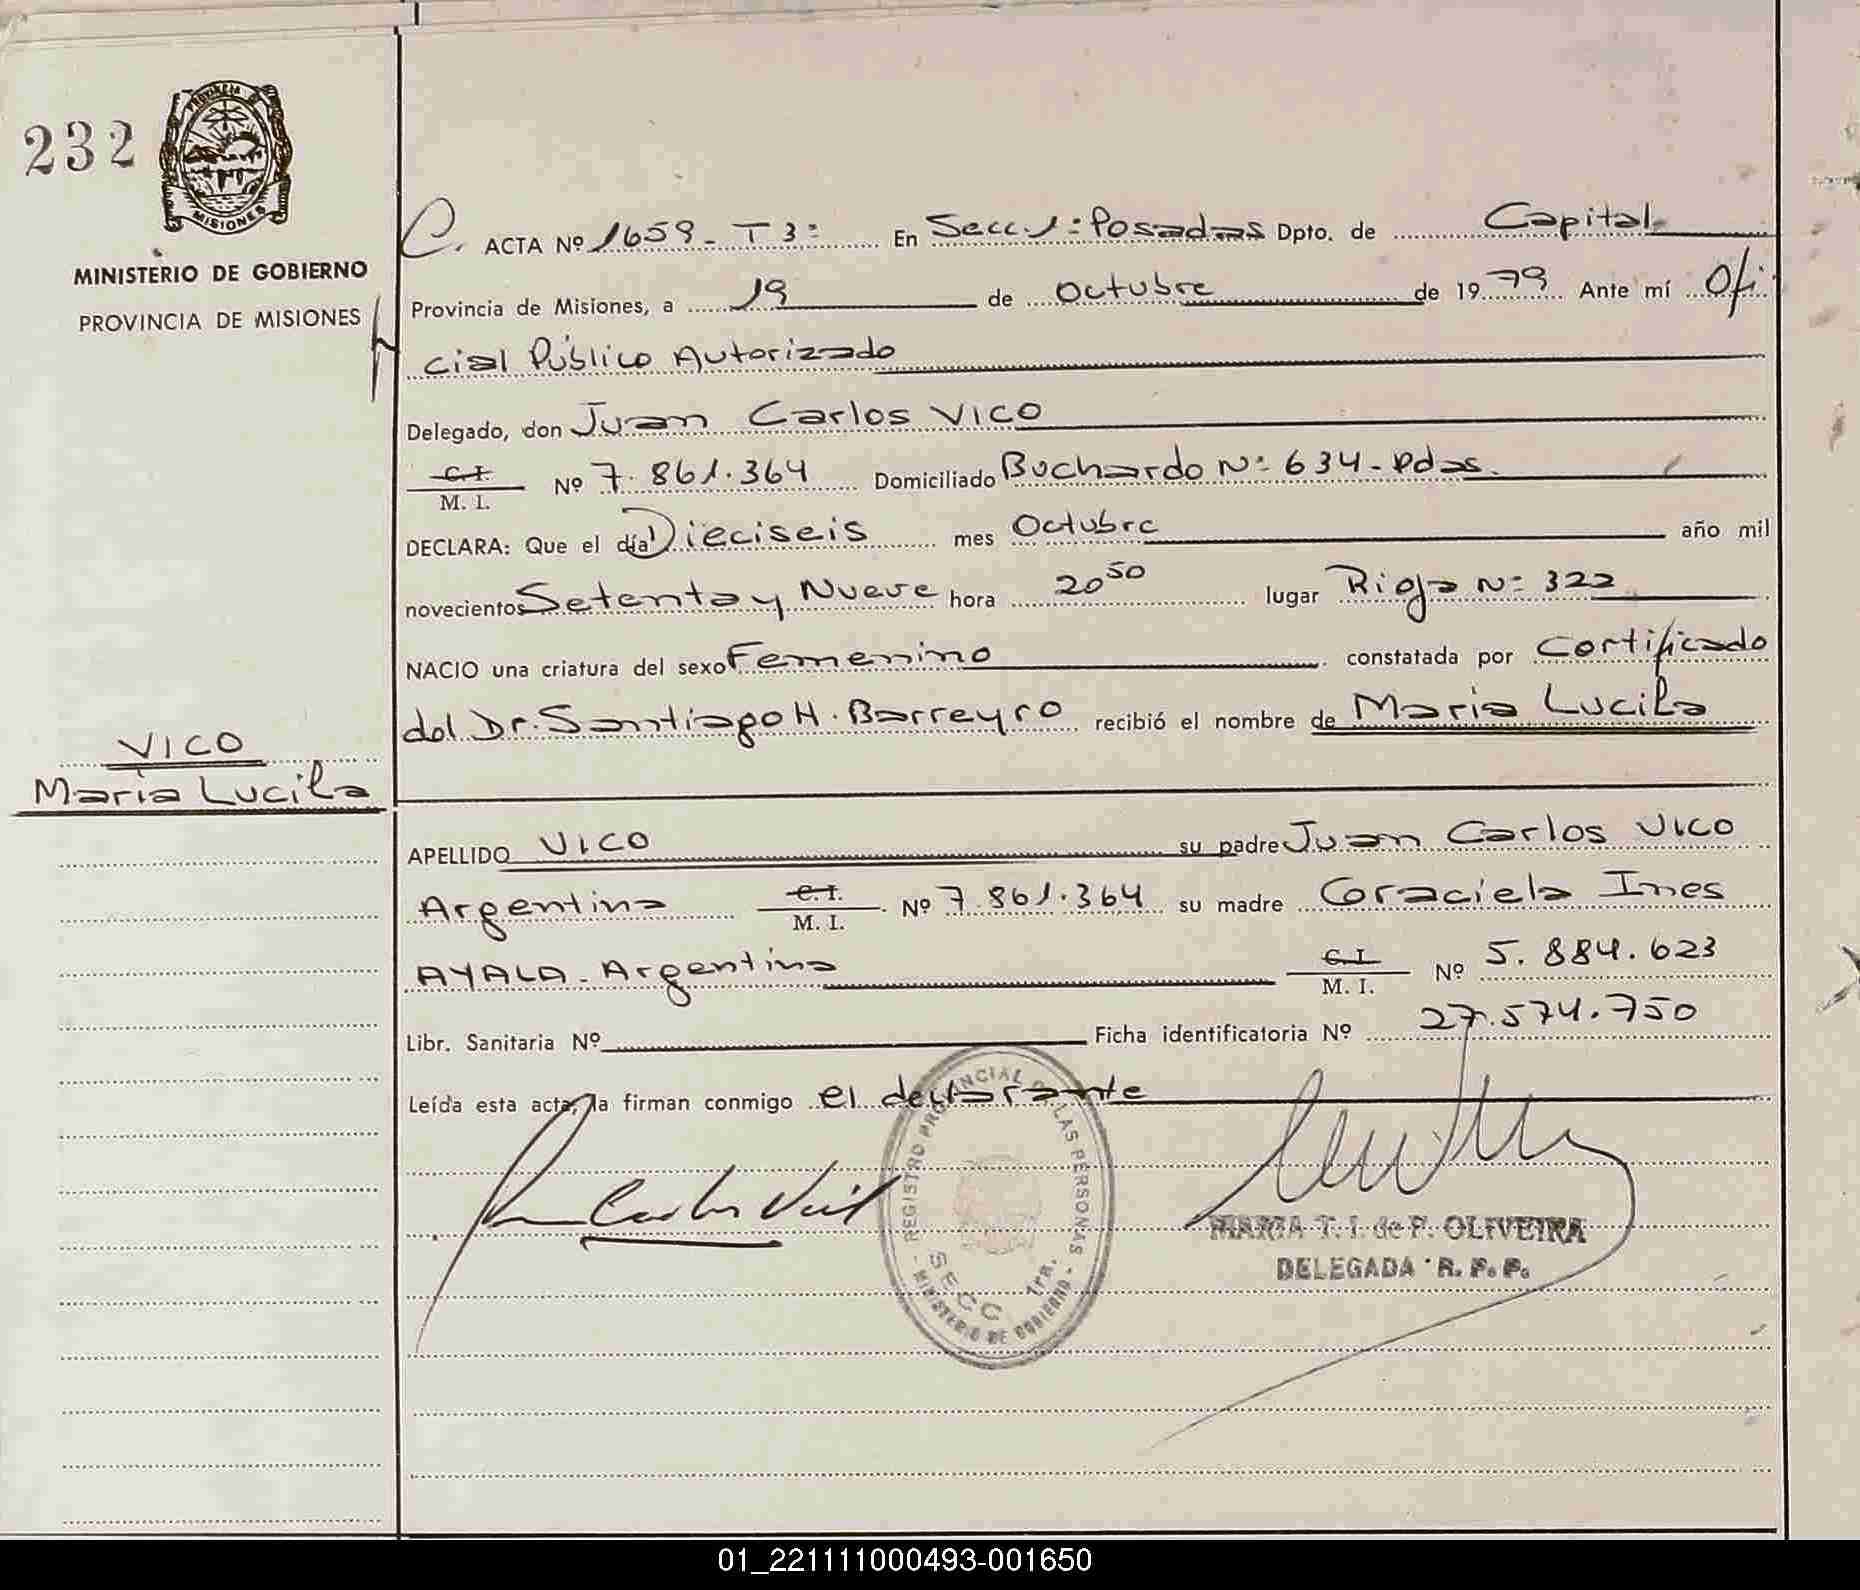 232
PROVINCIA DE
MISIONES
MINISTERIO DE GOBIERNO
PROVINCIA DE MISIONES
C. ACTA Nº 1659- T 3º En Secc. 1º Posadas Dpto. de Capital
Provincia de Misiones, a 19 de Octubre de 1979 Ante mí Ofi
cial Público Autorizado
Delegado, don Juan Carlos VICO
C.I. M. I. Nº 7.861.364 Domiciliado Buchardo Nº 634- Pdas.
DECLARA: Que el día Dieciseis mes Octubre año mil
novecientos Setenta y Nueve hora 20 50 lugar Rioja Nº 322
NACIO una criatura del sexo Femenino constatada por Certificado
del Dr. Santiago H. Barreyro recibió el nombre de Maria Lucila
VICO
Maria Lucila
APELLIDO VICO su padre Juan Carlos VICO
Argentino C.I. M. I. Nº 7.861.364 su madre Graciela Ines
AYALA- Argentina C.I. M. I. Nº 5.884.623
Libr. Sanitaria Nº Ficha identificatoria Nº 27.574.750
Leída esta acta, la firman conmigo el declarante
REGISTRO PROVINCIAL DE LAS PERSONAS
SECC 1ra.
MINISTERIO DE GOBIERNO
Juan Carlos Vico
MARIA T. I. de P. OLIVEIRA
DELEGADA R. P. P.
01_221111000493-001650